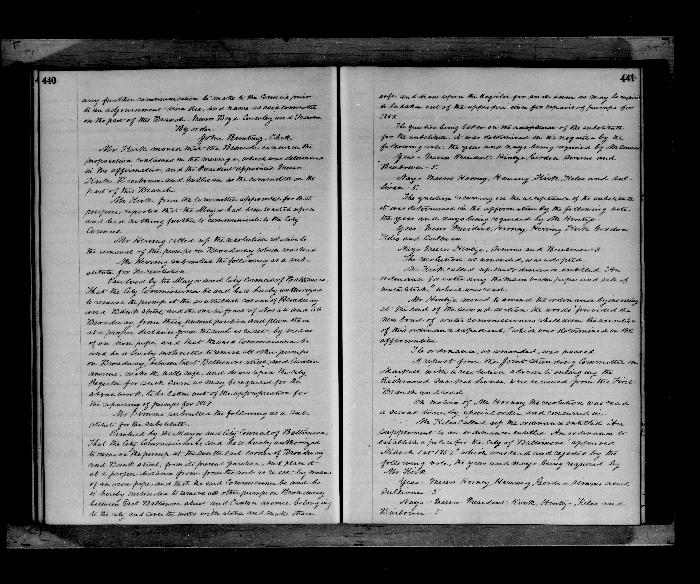 440
any further communication to make to the Council prior
to an adjournment sine die, and name as said committee
on the part of this Branch. Messrs Boyd Conway and Travers
By order.
John Bunting, Clerk
Mr Kirk moved that the Branch concur in the
proposition contained in the message, which was determined
in the affirmative, and the President appointed Messrs
Kirk and Sullivan as the committee on the
part of this Branch.
Mr Kirk from the committee appointed for that
purpose reported that the Mayor had been waited upon
and had nothing further to communicate to the City
Council.
Mr Herring called up the resolution relative to
the removal of the pumps on Broadway which was read
Mr Herring submitted the following as a sub-
stitute for the resolution.
Resolved by the Mayor and City Council of Baltimore,
That the City Commissioner be and he is hereby authorized
to remove the pumps at the south east corner of Broadway
and Bank street, and the one in front of
Broadway from their present position and place them
at a proper distance from the curb by means
of an iron pipe, and that the said Commissioner be
and he is hereby instructed to remove all other pumps
on Broadway between East Baltimore street and Canton
avenue, make the walls safe, and draw upon the City
Register for such sum as may be required for the
above work, to be taken out of the appropriation for
the repairing of pumps for 1858.
Mr Simms submitted the following as a sub-
stitute for the substitute.
Resolved by the Mayor and City Council of Baltimore,
That the City Commissioner be and he is hereby authorized
to remove the pump at the south east corner of Broadway
and Bank street, from its present position, and place it
at a proper distance from the curb by means
of an iron pipe, and that the said Commissioner be and he
is hereby instructed to remove all other pumps on Broadway
between East Baltimore street and Canton avenue belonging
to the city and cover the wells with stone and make them
441
safe and draw upon the Register for such sum as may be required
to be taken out of the appropriation for repairs of pumps for
1858.
The question being taken on the acceptance of the substitute
for the substitute, it was determined in the negative by the
following vote, the yeas and nays being required by Mr Simms
Yeas - Messrs President, Hintze, Gordon Simms and
5.
Nays - Messrs Horney, Herring, Kirk, Kelso and Sul-
livan - 5.
The question recurring on the acceptance of the substitute
it was determined in the affirmative by the following vote,
the yeas and nays being required by Mr Hintze
Yeas - Messrs President, Horney, Herring, Kirk Gordon
Kelso and Sullivan
Nays - Messrs Hintze, Simms and
The resolution as amended was adopted
Mr Kirk called up the ordinance entitled "An
ordinance for extending the main water pipes and sale of
water stock" which was read.
Mr Hintze moved to amend the ordinance by inserting
at the end of the second section the words "provided the
new board of water commissioners shall deem the execution
of this ordinance expedient," which was determined in the
affirmative
The ordinance, as amended, was passed
A report from the Joint Standing Committee on
Markets with a resolution relative to enlarging the
Richmond Market house were received from the First
Branch and read.
On motion of Mr Horney the resolution was read
a second time by special order and concurred in.
Mr Kelso called up the ordinance entitled "An
supplement to an ordinance entitled an ordinance to
establish a police for the City of Baltimore" approved
March 1st 1857, which was read and rejected by the
following vote, the yeas and nays being required by
Mr Kirk
Yeas - Messrs Horney, Herring, Gordon, Simms and
Sullivan 5
Nays - Messrs President Kirk, Hintze, Kelso and
5